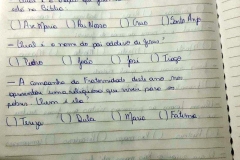 está na Bíblia
( ) Ave Maria ( ) Pai Nosso ( ) Creio ( ) Santo Anjo
- Qual é o nome do pai adotivo de Jesus?
( ) Pedro ( ) João ( ) José ( ) Tiago
- A campanha da Fraternidade deste ano nos
apresenta uma religiosa que viveu para os
pobres. Quem é ela?
( ) Tereza ( ) Dulce ( ) Maria ( ) Fátima